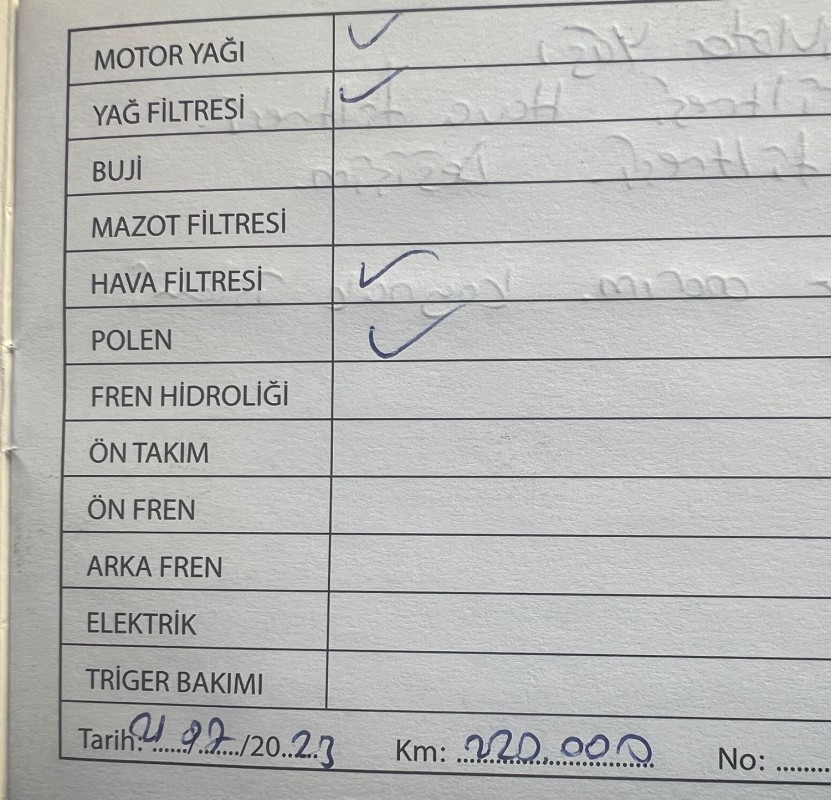 MOTOR YAĞI
YAĞ FİLTRESİ
BUJİ
MAZOT FİLTRESİ
HAVA FİLTRESİ
POLEN
FREN HİDROLİĞİ
ÖN TAKIM
ÖN FREN
ARKA FREN
ELEKTRİK
TRİGER BAKIMI
Tarih: /2023 Km: 220.000 No: